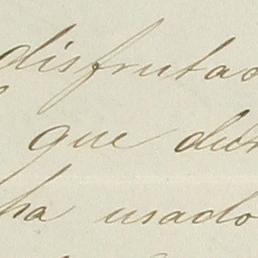 disfrutad
que dur
ha usado